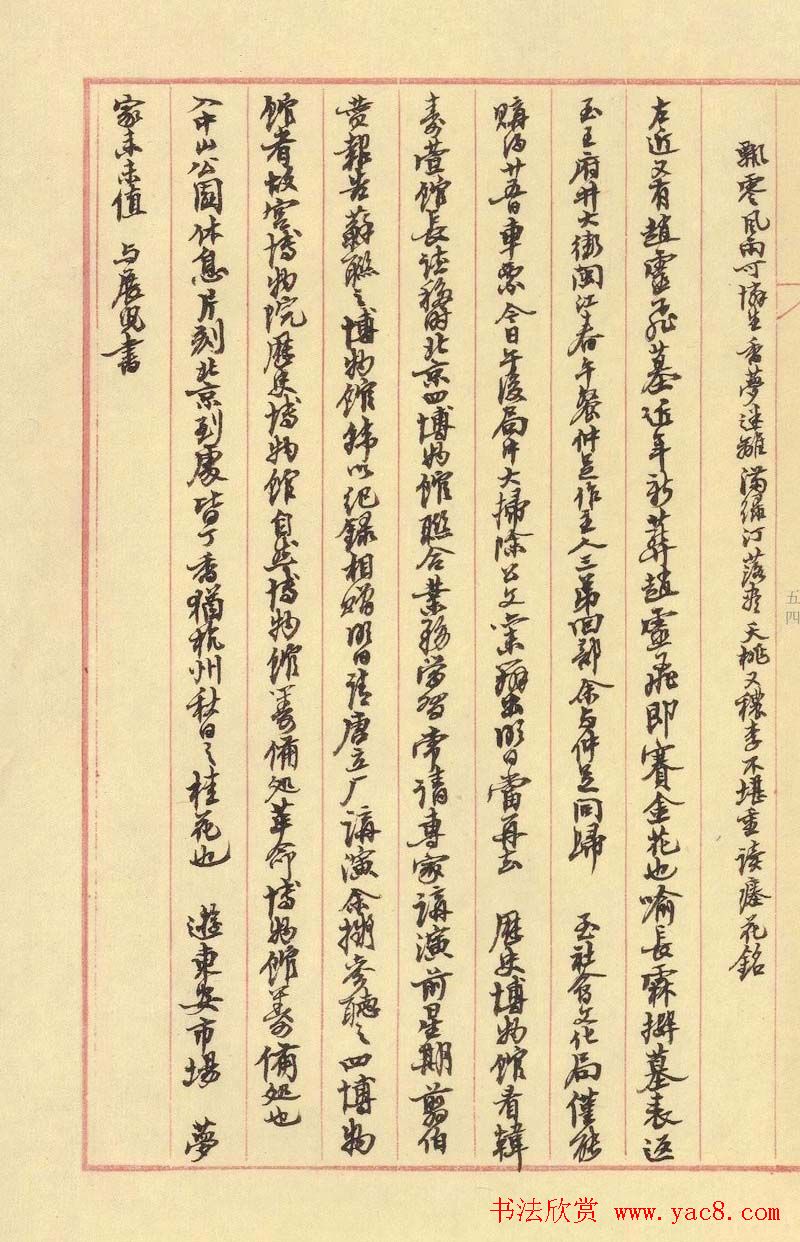 飄零風雨可憐生香夢迷離滿綠汀落盡夭桃又穠李不堪重讀瘞花銘
左近又有趙靈飛墓近年新葬趙靈飛即賽金花也喻長霖撰墓表返
至王府井大街閩江春午餐仲足作主人三第四部余与仲足同歸
購得廿五日車票今日午後局中大掃除公文 明日當再去 歷史博物館看韓
壽萱館長談移時北京四博物館聯合業務學習常請專家講演前星期翦伯
贊報告蘇聯之博物館韓以紀錄相贈明日請唐立厂講演余擬參聽之四博物
館者故宮博物院歷史博物館自然博物館籌備处革命博物館籌備处也
入中山公園休息片刻北京到處皆丁香猶杭州秋日之桂花也 遊東安市場 夢
家未值 与展 書
五四
书法欣赏 www.yac8.com